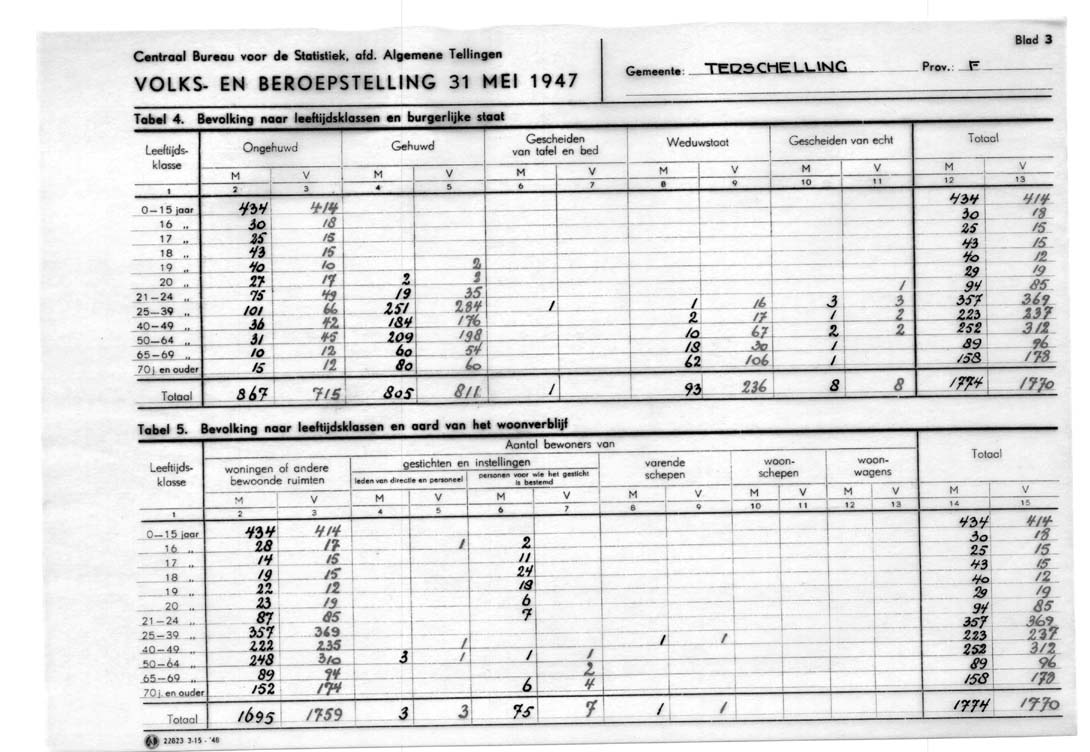 Blad 3
Centraal Bureau voor de Statistiek, afd. Algemene Tellingen
VOLKS- EN BEROEPSTELLING 31 MEI 1947
Gemeente: TERSCHELLING Prov.: F
Tabel 4. Bevolking naar leeftijdsklassen en burgerlijke staat
Leeftijds-klasse Ongehuwd Gehuwd Gescheiden van tafel en bed Weduwstaat Gescheiden van echt Totaal
M V M V M V M V M V M V
1 2 3 4 5 6 7 8 9 10 11 12 13
0—15 jaar 434 414 434 414
16 „ 30 18 30 18
17 „ 25 15 25 15
18 „ 43 15 43 15
19 „ 40 10 2 40 12
20 „ 27 17 2 2 29 19
21—24 „ 75 49 19 35 1 94 85
25—39 „ 101 66 251 284 1 1 16 3 3 357 369
40—49 „ 36 42 184 176 2 17 1 2 223 237
50—64 „ 31 45 209 198 10 67 2 2 252 312
65—69 „ 10 12 60 54 18 30 1 89 96
70 j. en ouder 15 12 80 60 62 106 1 158 178
Totaal 867 715 805 811 1 93 236 8 8 1774 1770
Tabel 5. Bevolking naar leeftijdsklassen en aard van het woonverblijf
Aantal bewoners van
Leeftijds-klasse woningen of andere bewoonde ruimten gestichten en instellingen varende schepen woon-schepen woon-wagens Totaal
leden van directie en personeel personen voor wie het gesticht is bestemd
M V M V M V M V M V M V M V
1 2 3 4 5 6 7 8 9 10 11 12 13 14 15
0—15 jaar 434 414 434 414
16 „ 28 17 1 2 30 18
17 „ 14 15 11 25 15
18 „ 19 15 24 43 15
19 „ 22 12 18 40 12
20 „ 23 19 6 29 19
21—24 „ 87 85 7 94 85
25—39 „ 357 369 357 369
40—49 „ 222 235 1 1 1 223 237
50—64 „ 248 310 3 1 1 1 252 312
65—69 „ 89 94 2 89 96
70 j. en ouder 152 174 6 4 158 178
Totaal 1695 1759 3 3 75 7 1 1 1774 1770
22823 3-15 - '48